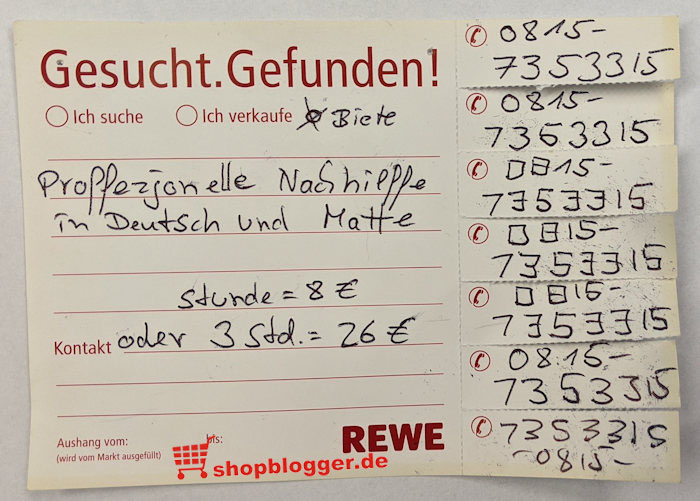 Gesucht.Gefunden!
Ich suche Ich verkaufe Biete
Proffezjonelle Nachhielffe
in Deutsch und Matte
Stunde = 8 €
Kontakt oder 3 Std. = 26 €
Aushang vom: bis:
(wird vom Markt ausgefüllt)
REWE
shopblogger.de
0815-
7353315
0815-
7353315
0815-
7353315
0815-
7353315
0815-
7353315
0815-
7353315
7353315
0815-